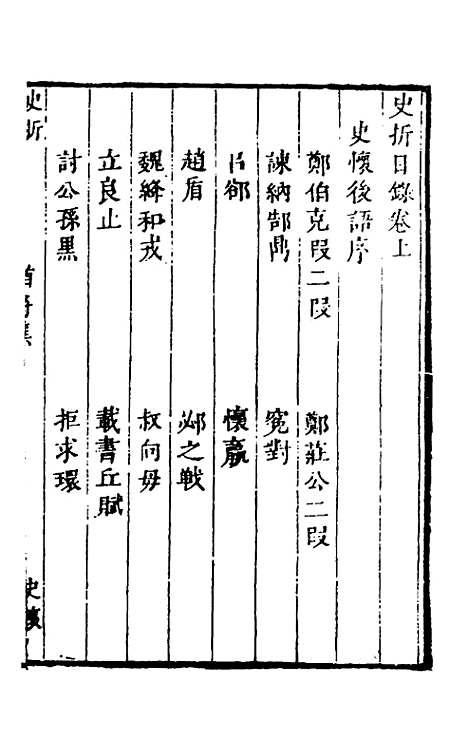 史折目錄卷上
史懷後語序
鄭伯克段二段 鄭莊公二段
諫納郜鼎 兗對
呂郤 懷嬴
趙盾 邲之戰
魏絳和戎 叔向母
立良止 載書丘賦
討公孫黑 拒求環
史折
史懷